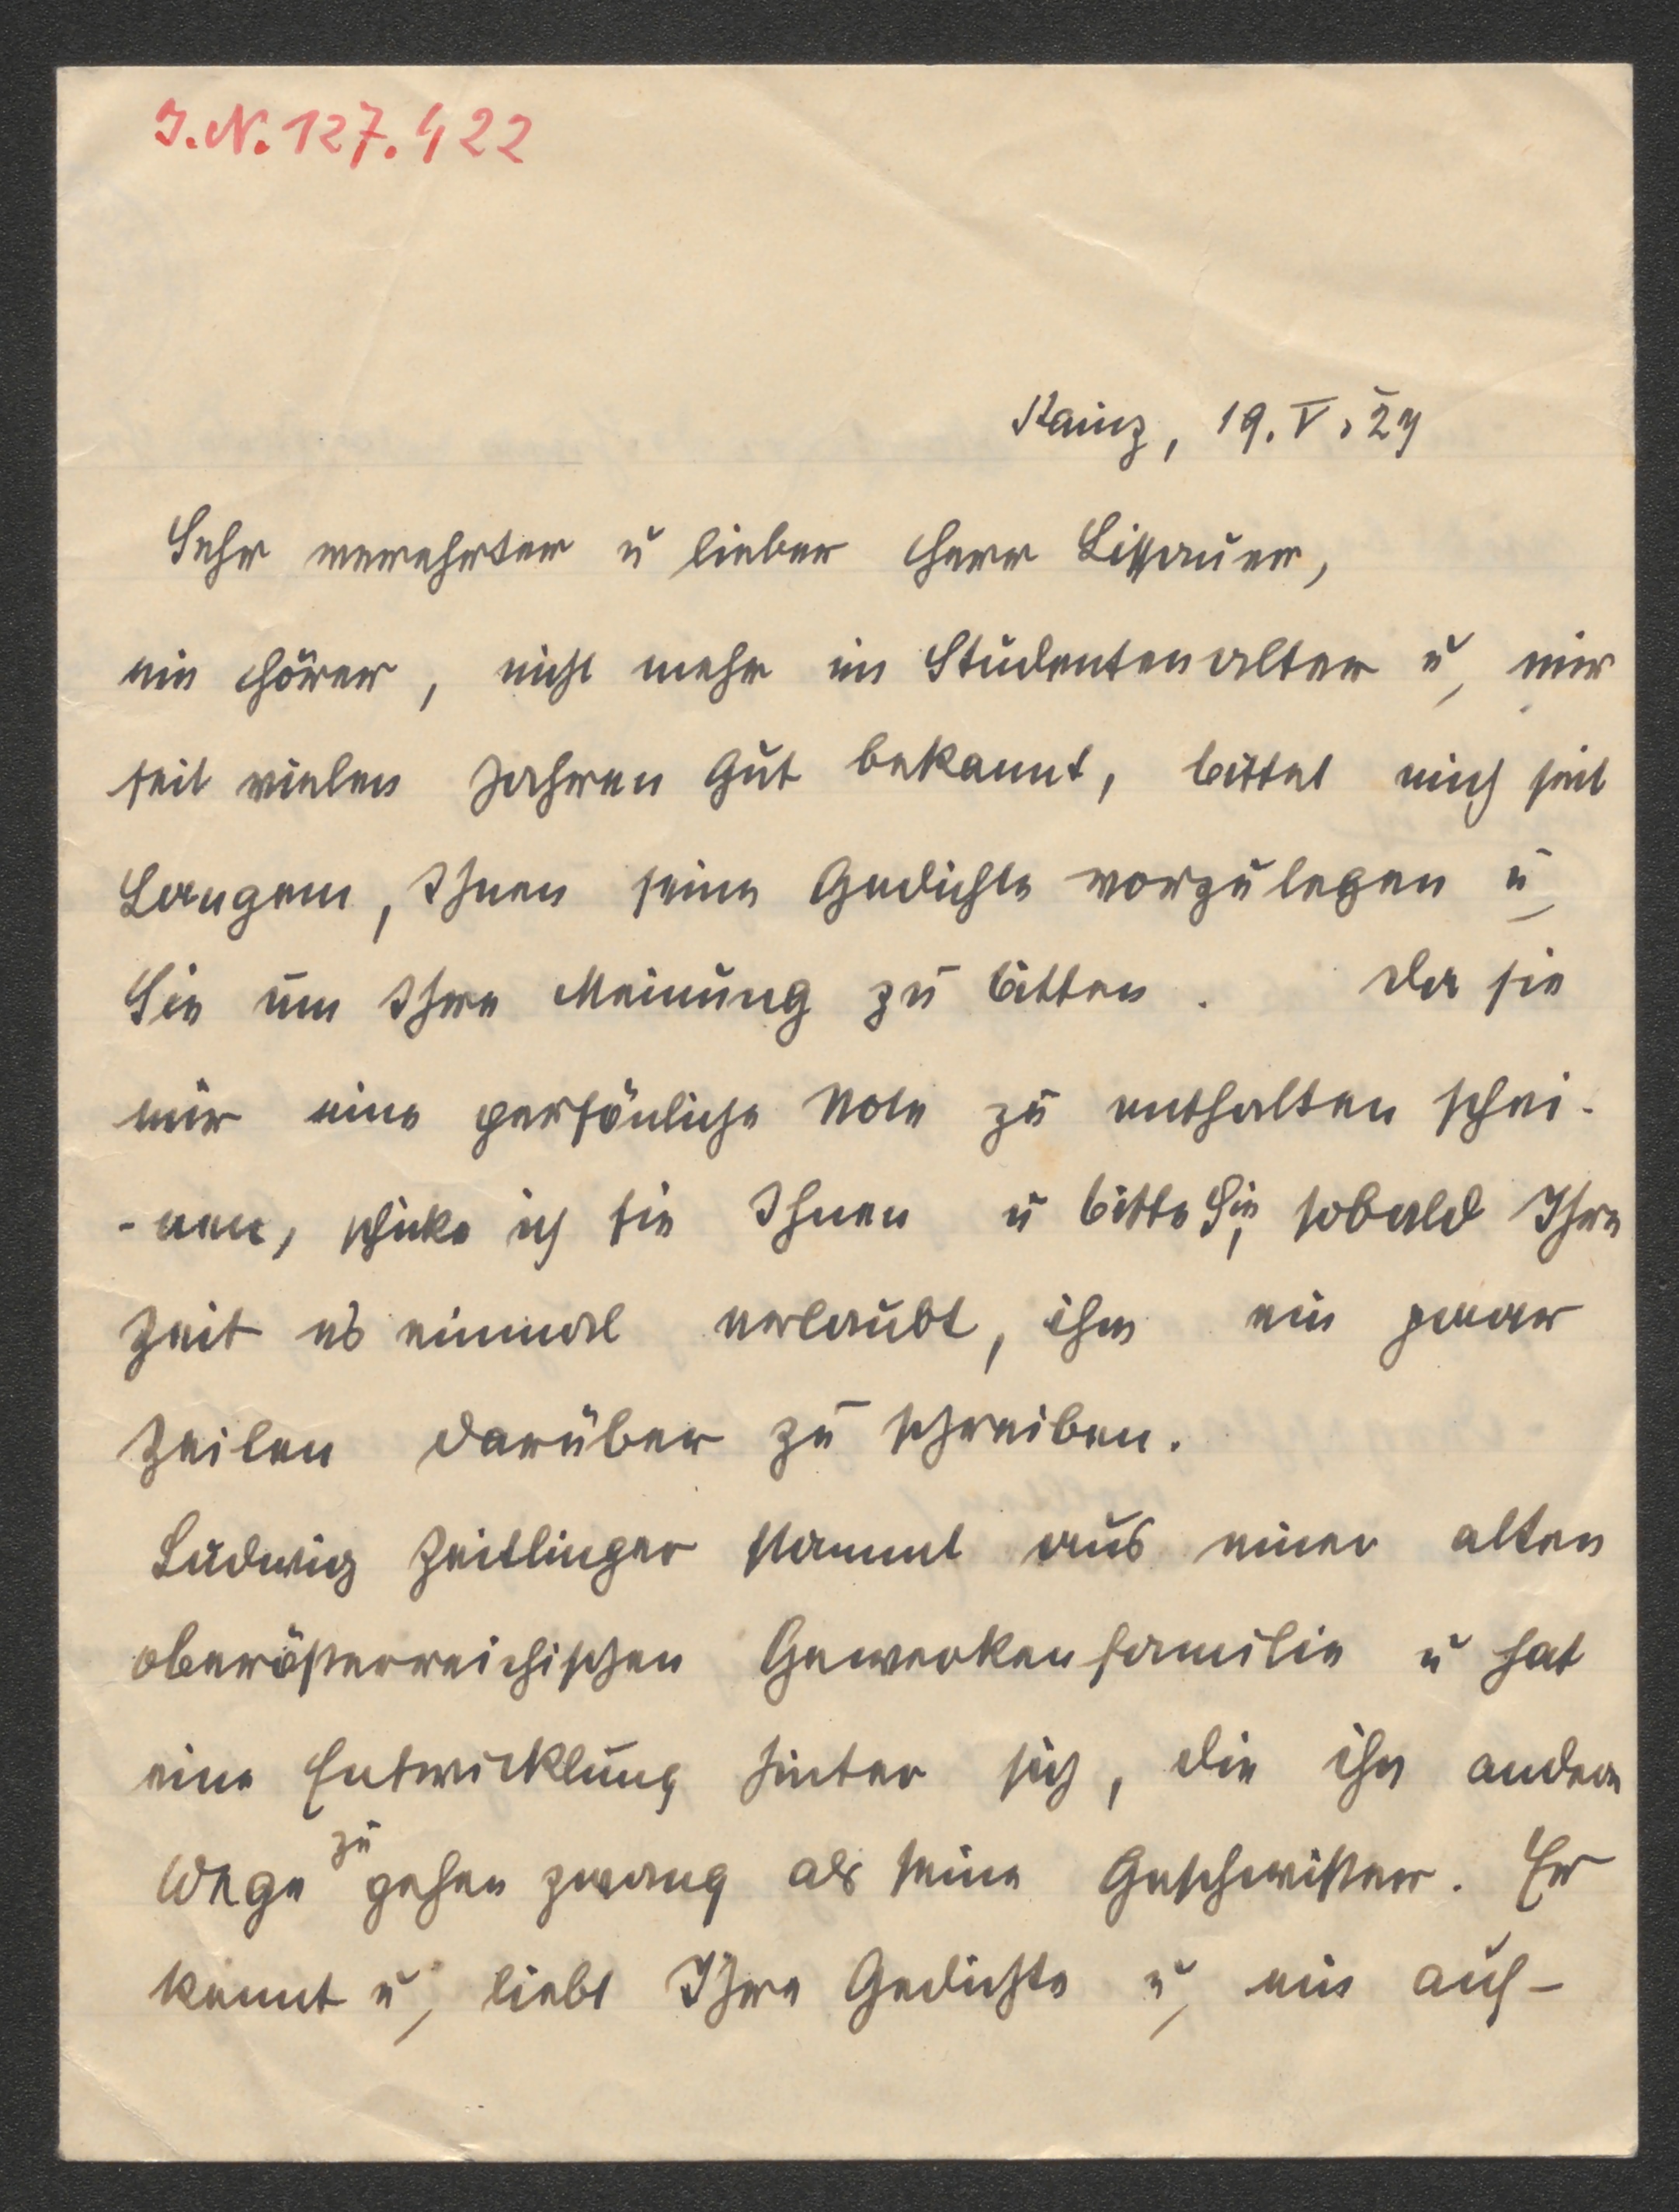 J.N. 127.422
Kainz, 19. V. 29
Sehr verehrter u lieber Herr Lissauer,
ein Hörer, nicht mehr im Studentenalter u, mir
seit vielen Jahren gut bekannt, bittet mich seit
Langem, Ihnen seine Gedichte vorzulegen u,
Sie um Ihre Meinung zu bitten. Da sie
mir eine persönliche Note zu enthalten schei-
-nen, schicke ich sie Ihnen u bitte Sie, sobald Ihre
Zeit es einmal erlaubt, ihm ein paar
Zeilen darüber zu schreiben.
Ludwig Zeitlinger stammt aus einer alten
oberösterreichischen Gewerkenfamilie u hat
eine Entwicklung hinter sich, die ihn andere
Wege zu gehen zwang als seine Geschwister. Er
kennt u, liebt Ihre Gedichte u, ein auf-